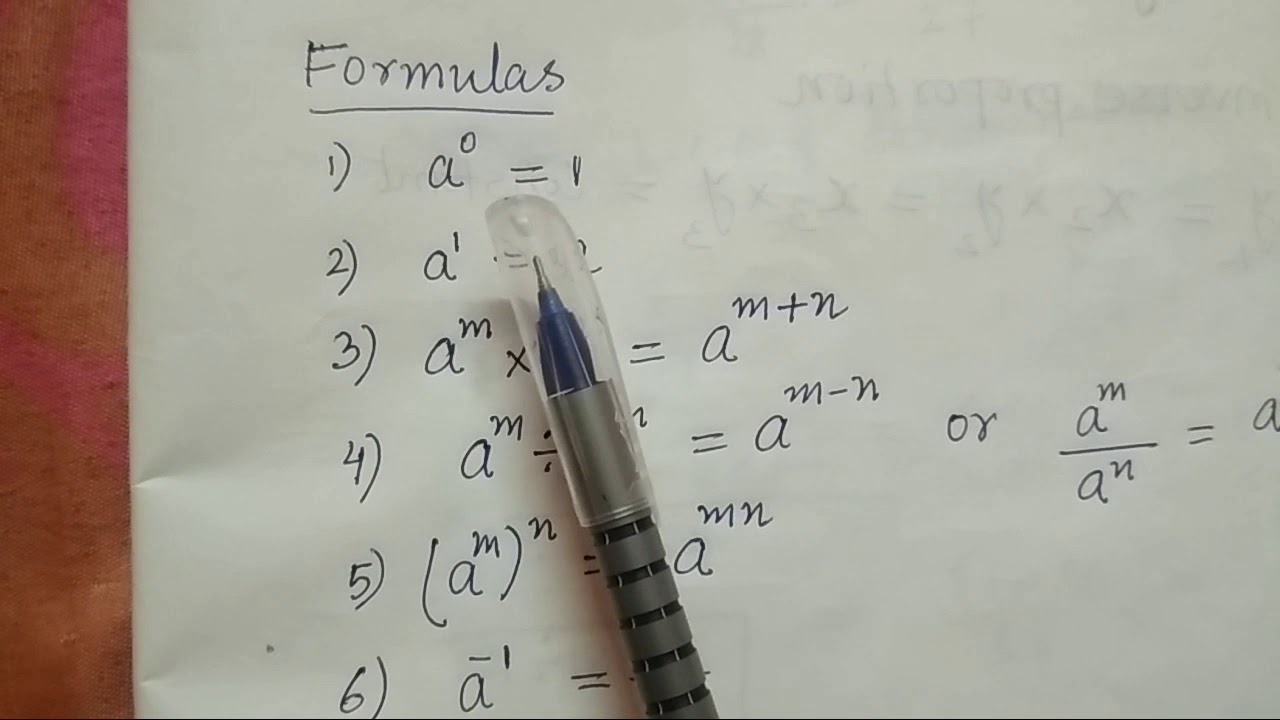 Formulas
1) a⁰ = 1
2) a¹ =
3) aᵐ × = aᵐ⁺ⁿ
4) aᵐ ÷ ⁿ = aᵐ⁻ⁿ or aᵐ/aⁿ = a
5) (aᵐ)ⁿ = aᵐⁿ
6) a⁻¹ =